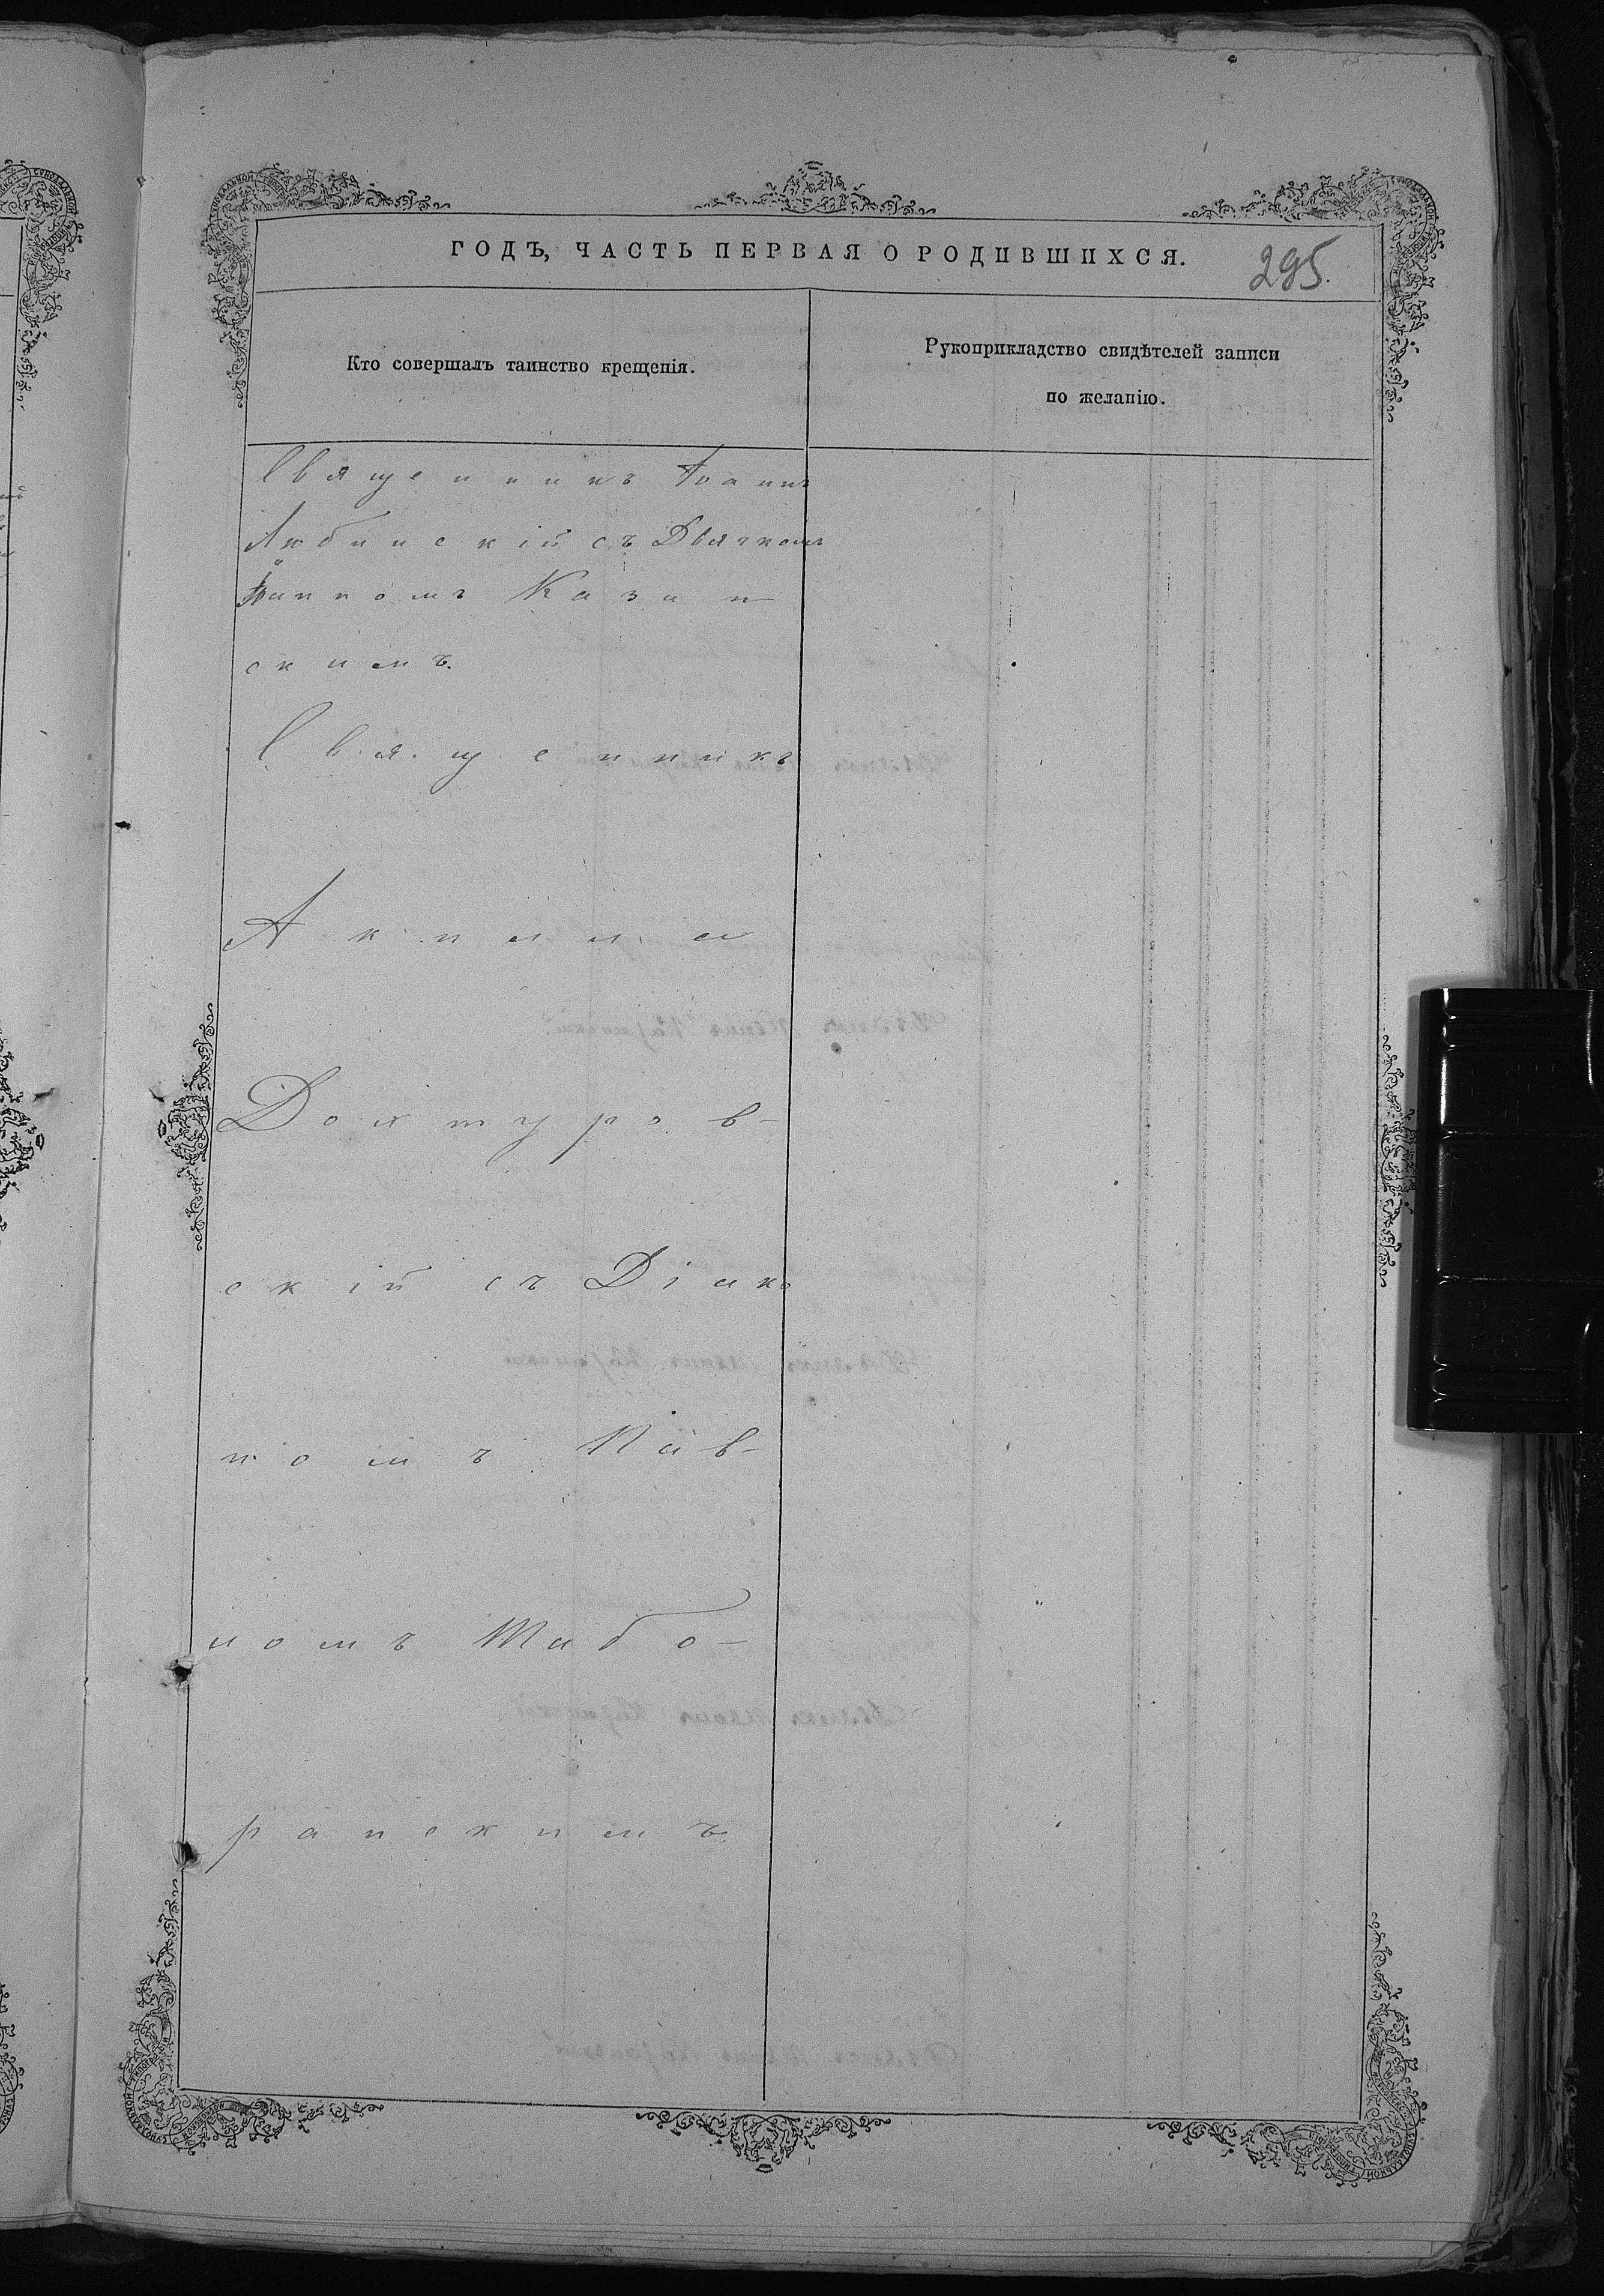 ГОДЪ, ЧАСТЬ ПЕРВАЯ О РОДИВШИХСЯ.
295.
Кто совершалъ таинство крещенія.
Рукоприкладство свидѣтелей записи
по желанію.
Священникъ Іоаннъ
Любинскій съ Дьячкомъ
Казан
скимъ.
Священникъ
Акила
Доктуров-
скій съ Діако
номъ Пав-
номъ Шабо-
ранскимъ